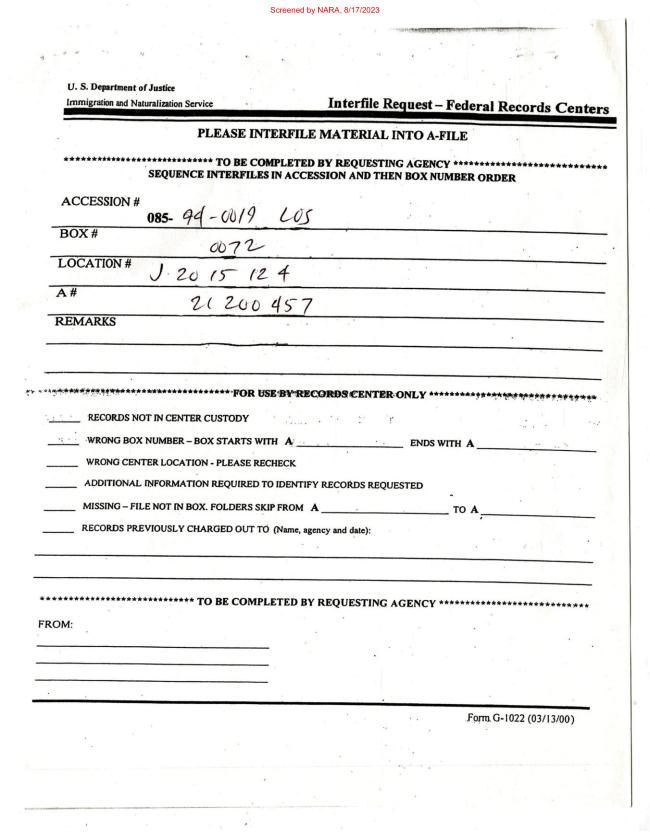 Screened by NARA, 8/17/2023
U. S. Department of Justice
Immigration and Naturalization Service
Interfile Request – Federal Records Centers
PLEASE INTERFILE MATERIAL INTO A-FILE
**************************** TO BE COMPLETED BY REQUESTING AGENCY ****************************
SEQUENCE INTERFILES IN ACCESSION AND THEN BOX NUMBER ORDER
ACCESSION #
085- 94-0019 LOS
BOX #
0072
LOCATION #
J 20 15 12 4
A #
21 200 457
REMARKS
**********************************FOR USE BY RECORDS CENTER ONLY **********************************
_____ RECORDS NOT IN CENTER CUSTODY
_____ WRONG BOX NUMBER – BOX STARTS WITH A ____________________ ENDS WITH A ____________________
_____ WRONG CENTER LOCATION - PLEASE RECHECK
_____ ADDITIONAL INFORMATION REQUIRED TO IDENTIFY RECORDS REQUESTED
_____ MISSING – FILE NOT IN BOX. FOLDERS SKIP FROM A ____________________ TO A ____________________
_____ RECORDS PREVIOUSLY CHARGED OUT TO (Name, agency and date):
**************************** TO BE COMPLETED BY REQUESTING AGENCY ****************************
FROM:
Form G-1022 (03/13/00)